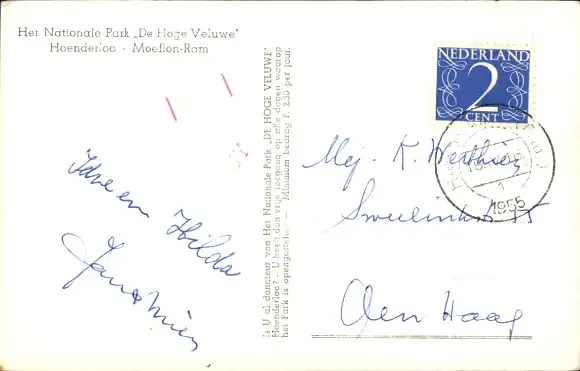 Het Nationale Park „De Hoge Veluwe"
Hoenderloo - Moeflon-Ram
Is U al donateur van Het Nationale Park „DE HOGE VELUWE"
Hoenderloo? - U heeft dan vrije toegang op alle dagen waarop
het Park is opengesteld. - Minimum bedrag F. 2.50 per jaar.
en Hilda
NEDERLAND
2
CENT
1955
Mej. K.
Den Haag